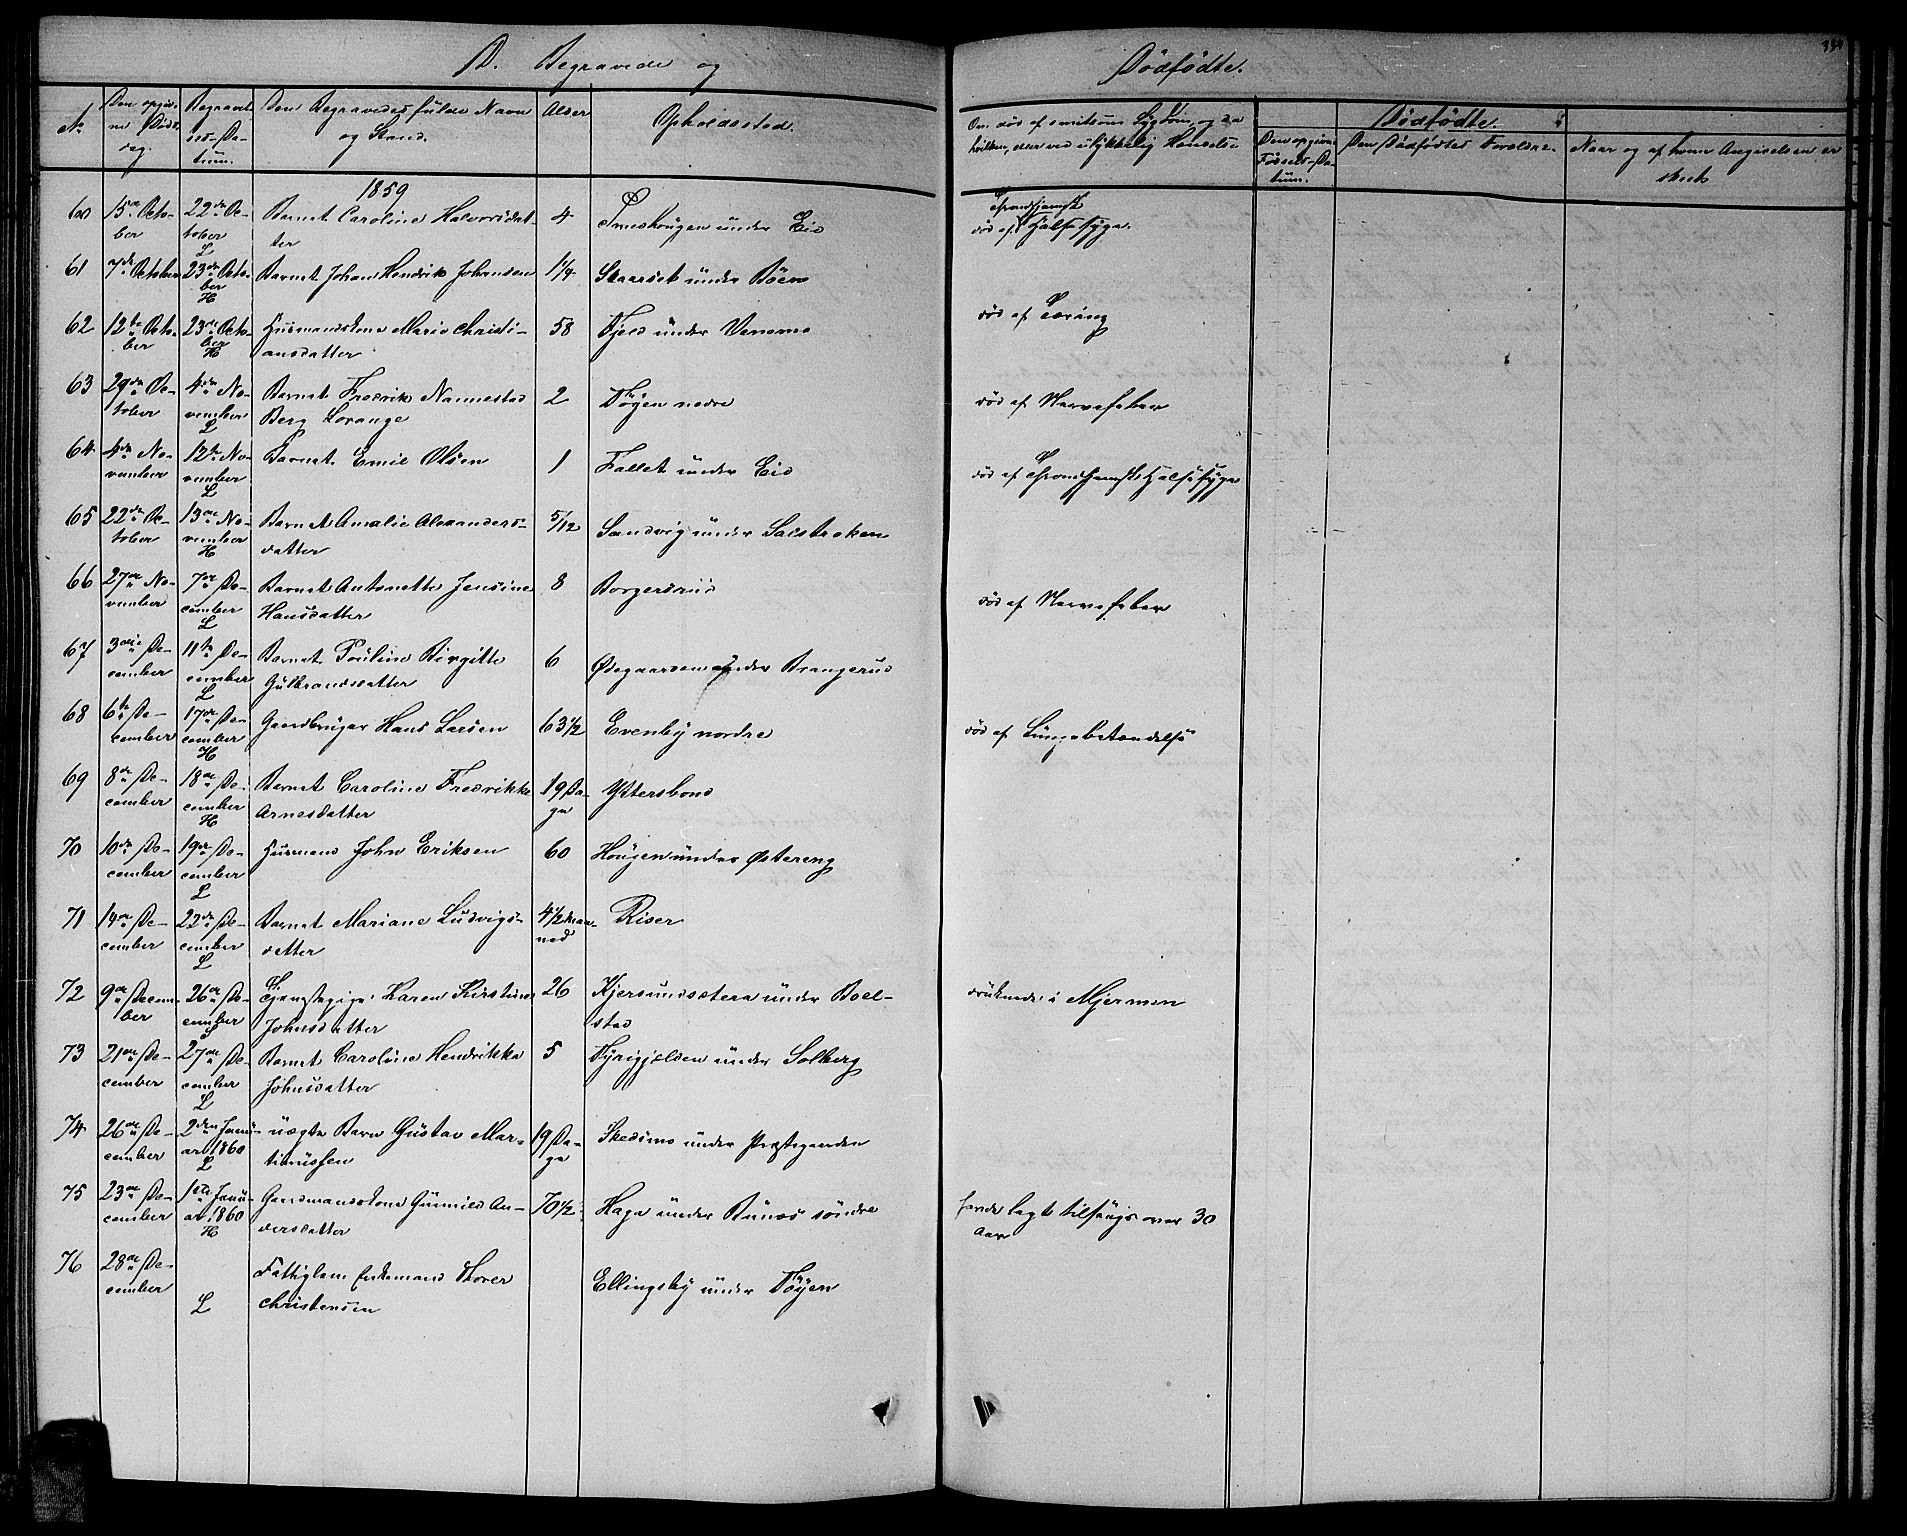 D. Begravede og Dödfödte.
No
Den opgivne Døds-dag.
Begravelses-Datum.
Den Begravedes fulde Navn og Stand.
Alder
Opholdssted.
Om død af smitsom Sygdom, og da hvilken, eller ved ulykkelig Hændelse
Dödfödte.
Den opgivne Fødsels-Datum.
Den Dødfødtes Forældre.
Naar og af hvem Angivelsen er skeet
1859
60 15de October 22de October L Barnet Caroline Halvorsdatter 4 under Eid død af Throndhjemsk Halssyge.
61 7de October 23de October H Barnet Johan Hendrik Johansen 1/4 Skaaret under Böen
62 12te October 23de October H Huusmandskone Marie Christiansdatter 58 Fjeld under Venemo død af Tæring
63 29de October 4de November L Barnet Fredrik Nannestad Berg Lorange 2 Tøyen nedre død af Nervefeber
64 4de November 12te November L Barnet Emil Olsen 1 Fallet under Eid død af Throndhjemsk Halssyge
65 22de October 13de November H Barnet Amalie Alexandersdatter 5/12 Sandvig under
66 27de November 7de December L Barnet Antonette Jensine Hansdatter 8 Borgersrud død af Nervefeber
67 3die December 11te December L Barnet Pauline Birgitte Gulbrandsdatter 6 Ødegaarden under Brangerud
68 6te December 17de December H Gaardbruger Hans Larsen 63 1/2 Evenby nordre død af Lungebetændelse
69 8de December 18de December H Barnet Caroline Fredrikke Arnesdatter 19 Dage Yttersbond
70 10de December 19de December L Huusmand John Eriksen 60 Hougen under Østereng
71 14de December 22de December L Barnet Mariane Ludvigsdatter 4 1/2 Maaned Riser
72 9de December 26de December L Tjenestepige Karen Kirstine Johnsdatter 26 Kjersundsætera under Boelstad druknede i Mjermen
73 21de December 27de December L Barnet Caroline Hendrikke Johnsdatter 5 Tyrigjelden under Solberg
74 26de December 2den Januar 1860 L uægte Barn Gustav Martinussen 19 Dage Skedsmo under Præstegaarden
75 23de December 1ste Januar 1860 H Gaardmandskone Gunnild Andersdatter 70 1/2 Haga under Bunæs söndre havde lagt tilsengs over 30 Aar
76 28de December L Fattiglem Enkemand Thorer Christensen Ellingsby under Tøyen